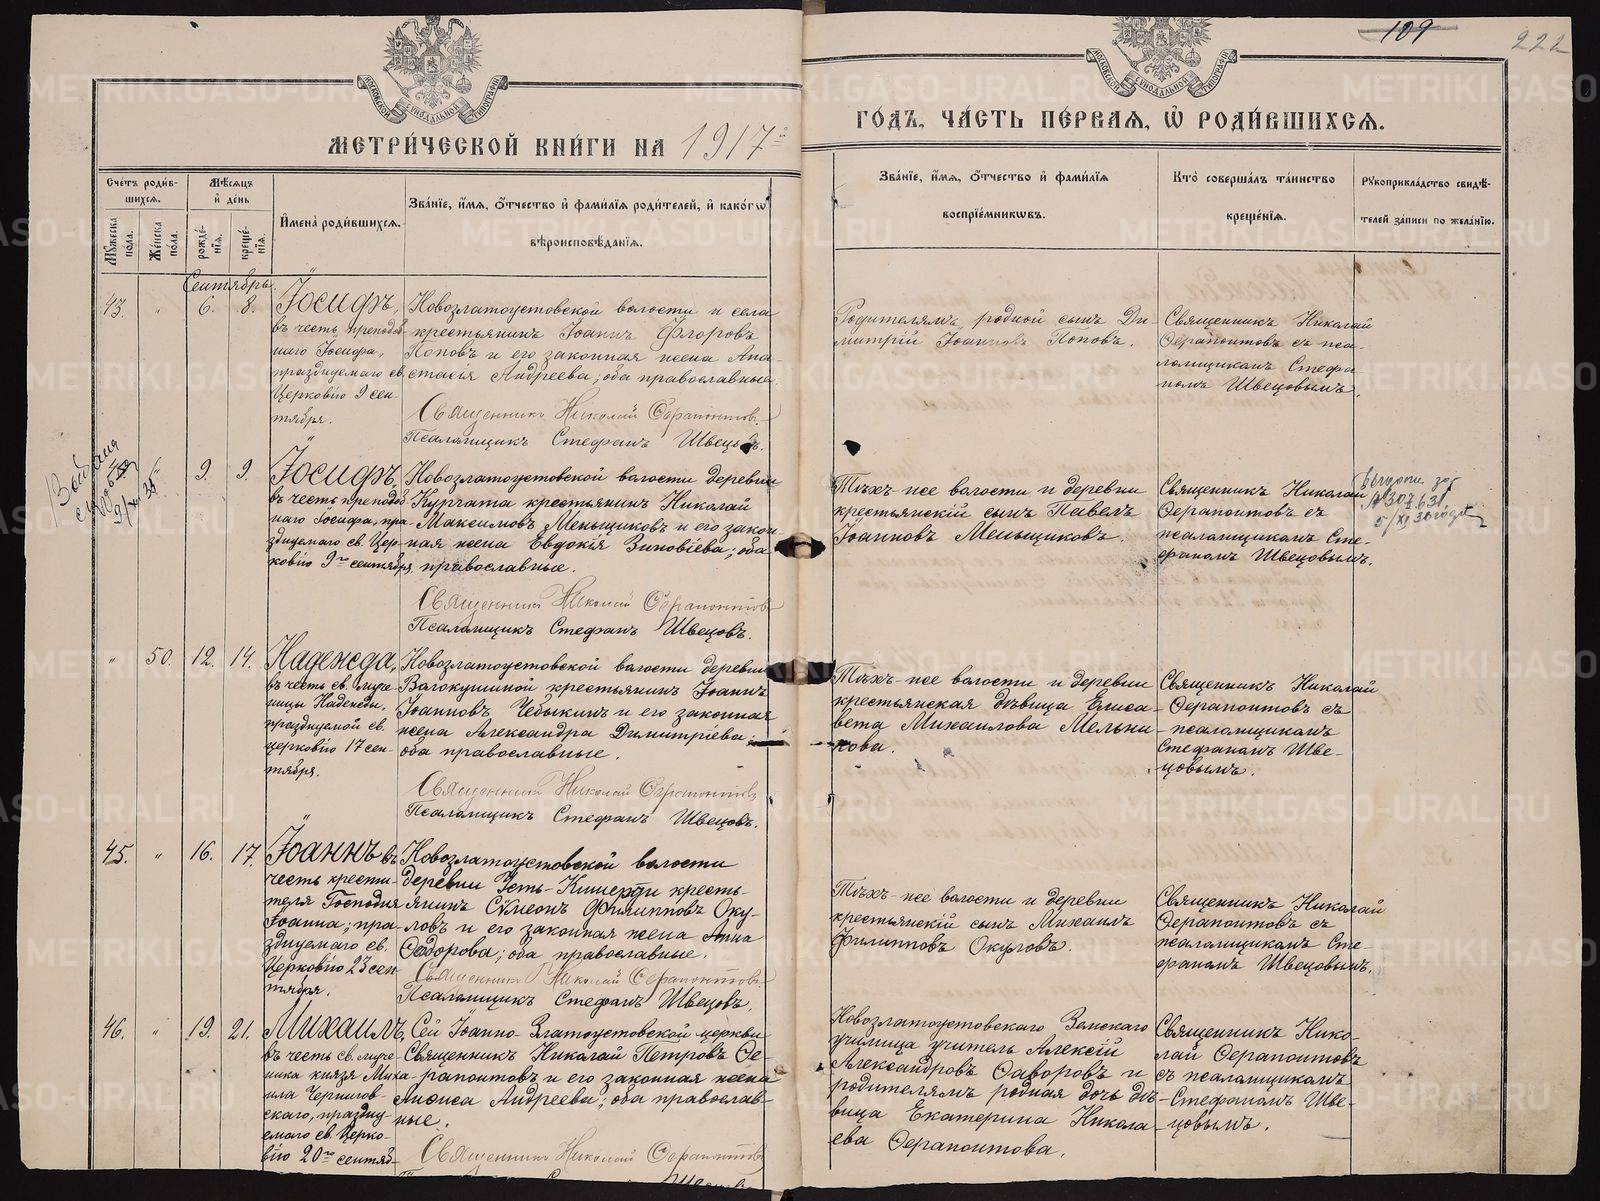 109
222
МЕТРИ́ЧЕСКОЙ КНИ́ГИ НА 1917й
ГОДЪ, ЧА́СТЬ ПЕ́РВАЯ, Ѡ РОДИ́ВШИХСЯ.
Сче́тъ роди́в-
шихся.
Му́жеска пола.
Же́нска пола.
Мѣ́сяцъ
и́ де́нь
рожде́-
нія.
креще́-
нія.
И́мена̀ роди́вшихся.
Зва́нїе, и́мя, ѻ́тчество и́ фами́лїя роди́телей, и́ како́гѡ
вѣроисповѣ́данїя.
Зва́нїе, и́мя, ѻ́тчество и́ фами́лїя
воспрїе́мниковъ.
Кто̀ соверша́лъ та́инство
креще́нїя.
Рукоприкла́дство свидѣ́-
телей за́писи по жела́нїю.
Сентябрь.
43. „ 6. 8.
Іосифъ,
въ честь преподоб-
наго Іосифа,
празднуемаго св.
Церковію 9 сен-
тября.
Новозлатоустовской волости и села
крестьянинъ Іоаннъ Флоровъ
Поповъ и его законная жена Ана-
стасія Андреева; оба православные.
Священникъ Николай Серапонтовъ.
Псаломщикъ Стефанъ Швецовъ.
Родителямъ родной сынъ Ди-
митрій Іоанновъ Поповъ.
Священникъ Николай
Серапонтовъ съ пса-
ломщикомъ Стефа-
номъ Швецовымъ.
„ 9. 9.
Іосифъ,
въ честь преподоб-
наго Іосифа, пра-
зднуемаго св. Цер-
ковію 9го сентября.
Новозлатоустовской волости деревни
Курчата крестьянинъ Николай
Максимовъ Меньщиковъ и его закон-
ная жена Евдокія Зиновіева; оба
православные.
Священникъ Николай Серапонтовъ
Псаломщикъ Стефанъ Швецовъ.
Тѣхъ-же волости и деревни
крестьянскій сынъ Павелъ
Іоанновъ Меньщиковъ.
Священникъ Николай
Серапонтовъ съ
псаломщикомъ Сте-
фаномъ Швецовымъ.
„ 50. 12. 14.
Надежда,
въ честь св. муче-
ницы Надежды,
празднуемой св.
церковію 17 сен-
тября.
Новозлатоустовской волости деревни
Волокушиной крестьянинъ Іоаннъ
Іоанновъ Чебыкинъ и его законная
жена Александра Димитріева;
оба православные.
Священникъ Николай Серапонтовъ
Псаломщикъ Стефанъ Швецовъ.
Тѣхъ-же волости и деревни
крестьянская дѣвица Елиса-
вета Михаилова Мельни-
кова.
Священникъ Николай
Серапонтовъ съ
псаломщикомъ
Стефаномъ Шве-
цовымъ.
45. „ 16. 17.
Іоаннъ въ
честь крести-
теля Господня
Іоанна; пра-
зднуемаго св.
Церковію 23 сен-
тября.
Новозлатоустовской волости
деревни Усть-Кишерди кресть-
янинъ Симеонъ Филипповъ Оку-
ловъ и его законная жена Анна
Ѳеодорова; оба православные.
Священникъ Николай Серапонтовъ
Псаломщикъ Стефанъ Швецовъ.
Тѣхъ-же волости и деревни
крестьянскій сынъ Михаилъ
Филипповъ Окуловъ.
Священникъ Николай
Серапонтовъ съ
псаломщикомъ Сте-
фаномъ Швецовымъ.
46. „ 19. 21.
Михаилъ,
въ честь св. муче-
ника князя Миха-
ила Чернигов-
скаго, праздну-
емаго св. Церко-
вію 20го сентяб-
Сей Іоанно-Златоустовской церкви
Священникъ Николай Петровъ Се-
рапонтовъ и его законная жена
Анфиса Андреева; оба православ-
ные.
Священникъ Николай Серапонтовъ
Новозлатоустовскаго Земскаго
училища учитель Алексій
Александровъ Саворовъ и
родителямъ родная дочь дѣ-
вица Екатерина Никола-
ева Серапонтова.
Священникъ Нико-
лай Серапонтовъ
съ псаломщикомъ
Стефаномъ Шве-
цовымъ.
METRIKI.GASO-URAL.RU